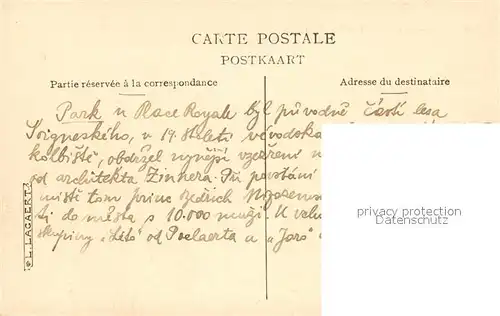 CARTE POSTALE
POSTKAART
Partie réservée à la correspondance
Adresse du destinataire
Park u Place Royale byl původně částí lesa
Soigneského, v 14. století vévodska
kolbiště, obdržel nynější vzezření
od architekta Zinnera. Při povstání
místě tom princ Bedřich
do města s 10.000 muži. U
skupiny "Léto" od Poelaerta a "Jaro"
E.L. LAGAERT
privacy protection
VERSANDHANDEL
Boeger